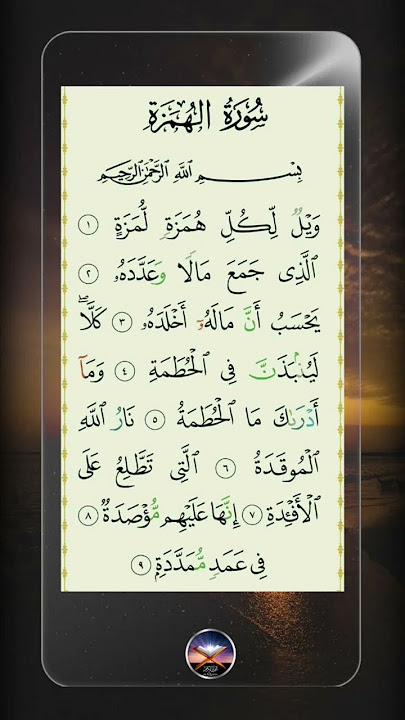 سُورَةُ الْهُمَزَةِ
بِسْمِ ٱللَّهِ ٱلرَّحْمَٰنِ ٱلرَّحِيمِ
وَيْلٌ لِّكُلِّ هُمَزَةٍ لُّمَزَةٍ ١
ٱلَّذِى جَمَعَ مَالًا وَعَدَّدَهُۥ ٢
يَحْسَبُ أَنَّ مَالَهُۥٓ أَخْلَدَهُۥ ٣ كَلَّاۖ
لَيُنۢبَذَنَّ فِى ٱلْحُطَمَةِ ٤ وَمَآ
أَدْرَىٰكَ مَا ٱلْحُطَمَةُ ٥ نَارُ ٱللَّهِ
ٱلْمُوقَدَةُ ٦ ٱلَّتِى تَطَّلِعُ عَلَى
ٱلْأَفْـِٔدَةِ ٧ إِنَّهَا عَلَيْهِم مُّؤْصَدَةٌ ٨
فِى عَمَدٍ مُّمَدَّدَةٍۭ ٩